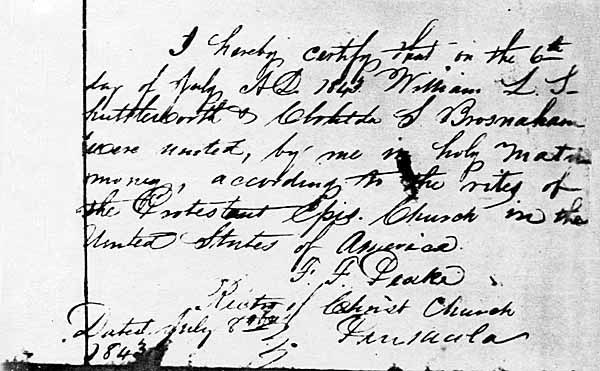 I hereby certify that on the 6th
day of July A.D. 1843 William L. S
huttleworth & Clotilda S Brosnaham
were united, by me in holy Matri
mony, according to the rites of
the Protestant Epis. Church in the
United States of America.
F. F. Peake
Rector of Christ Church
Dated July Pensacola
1843